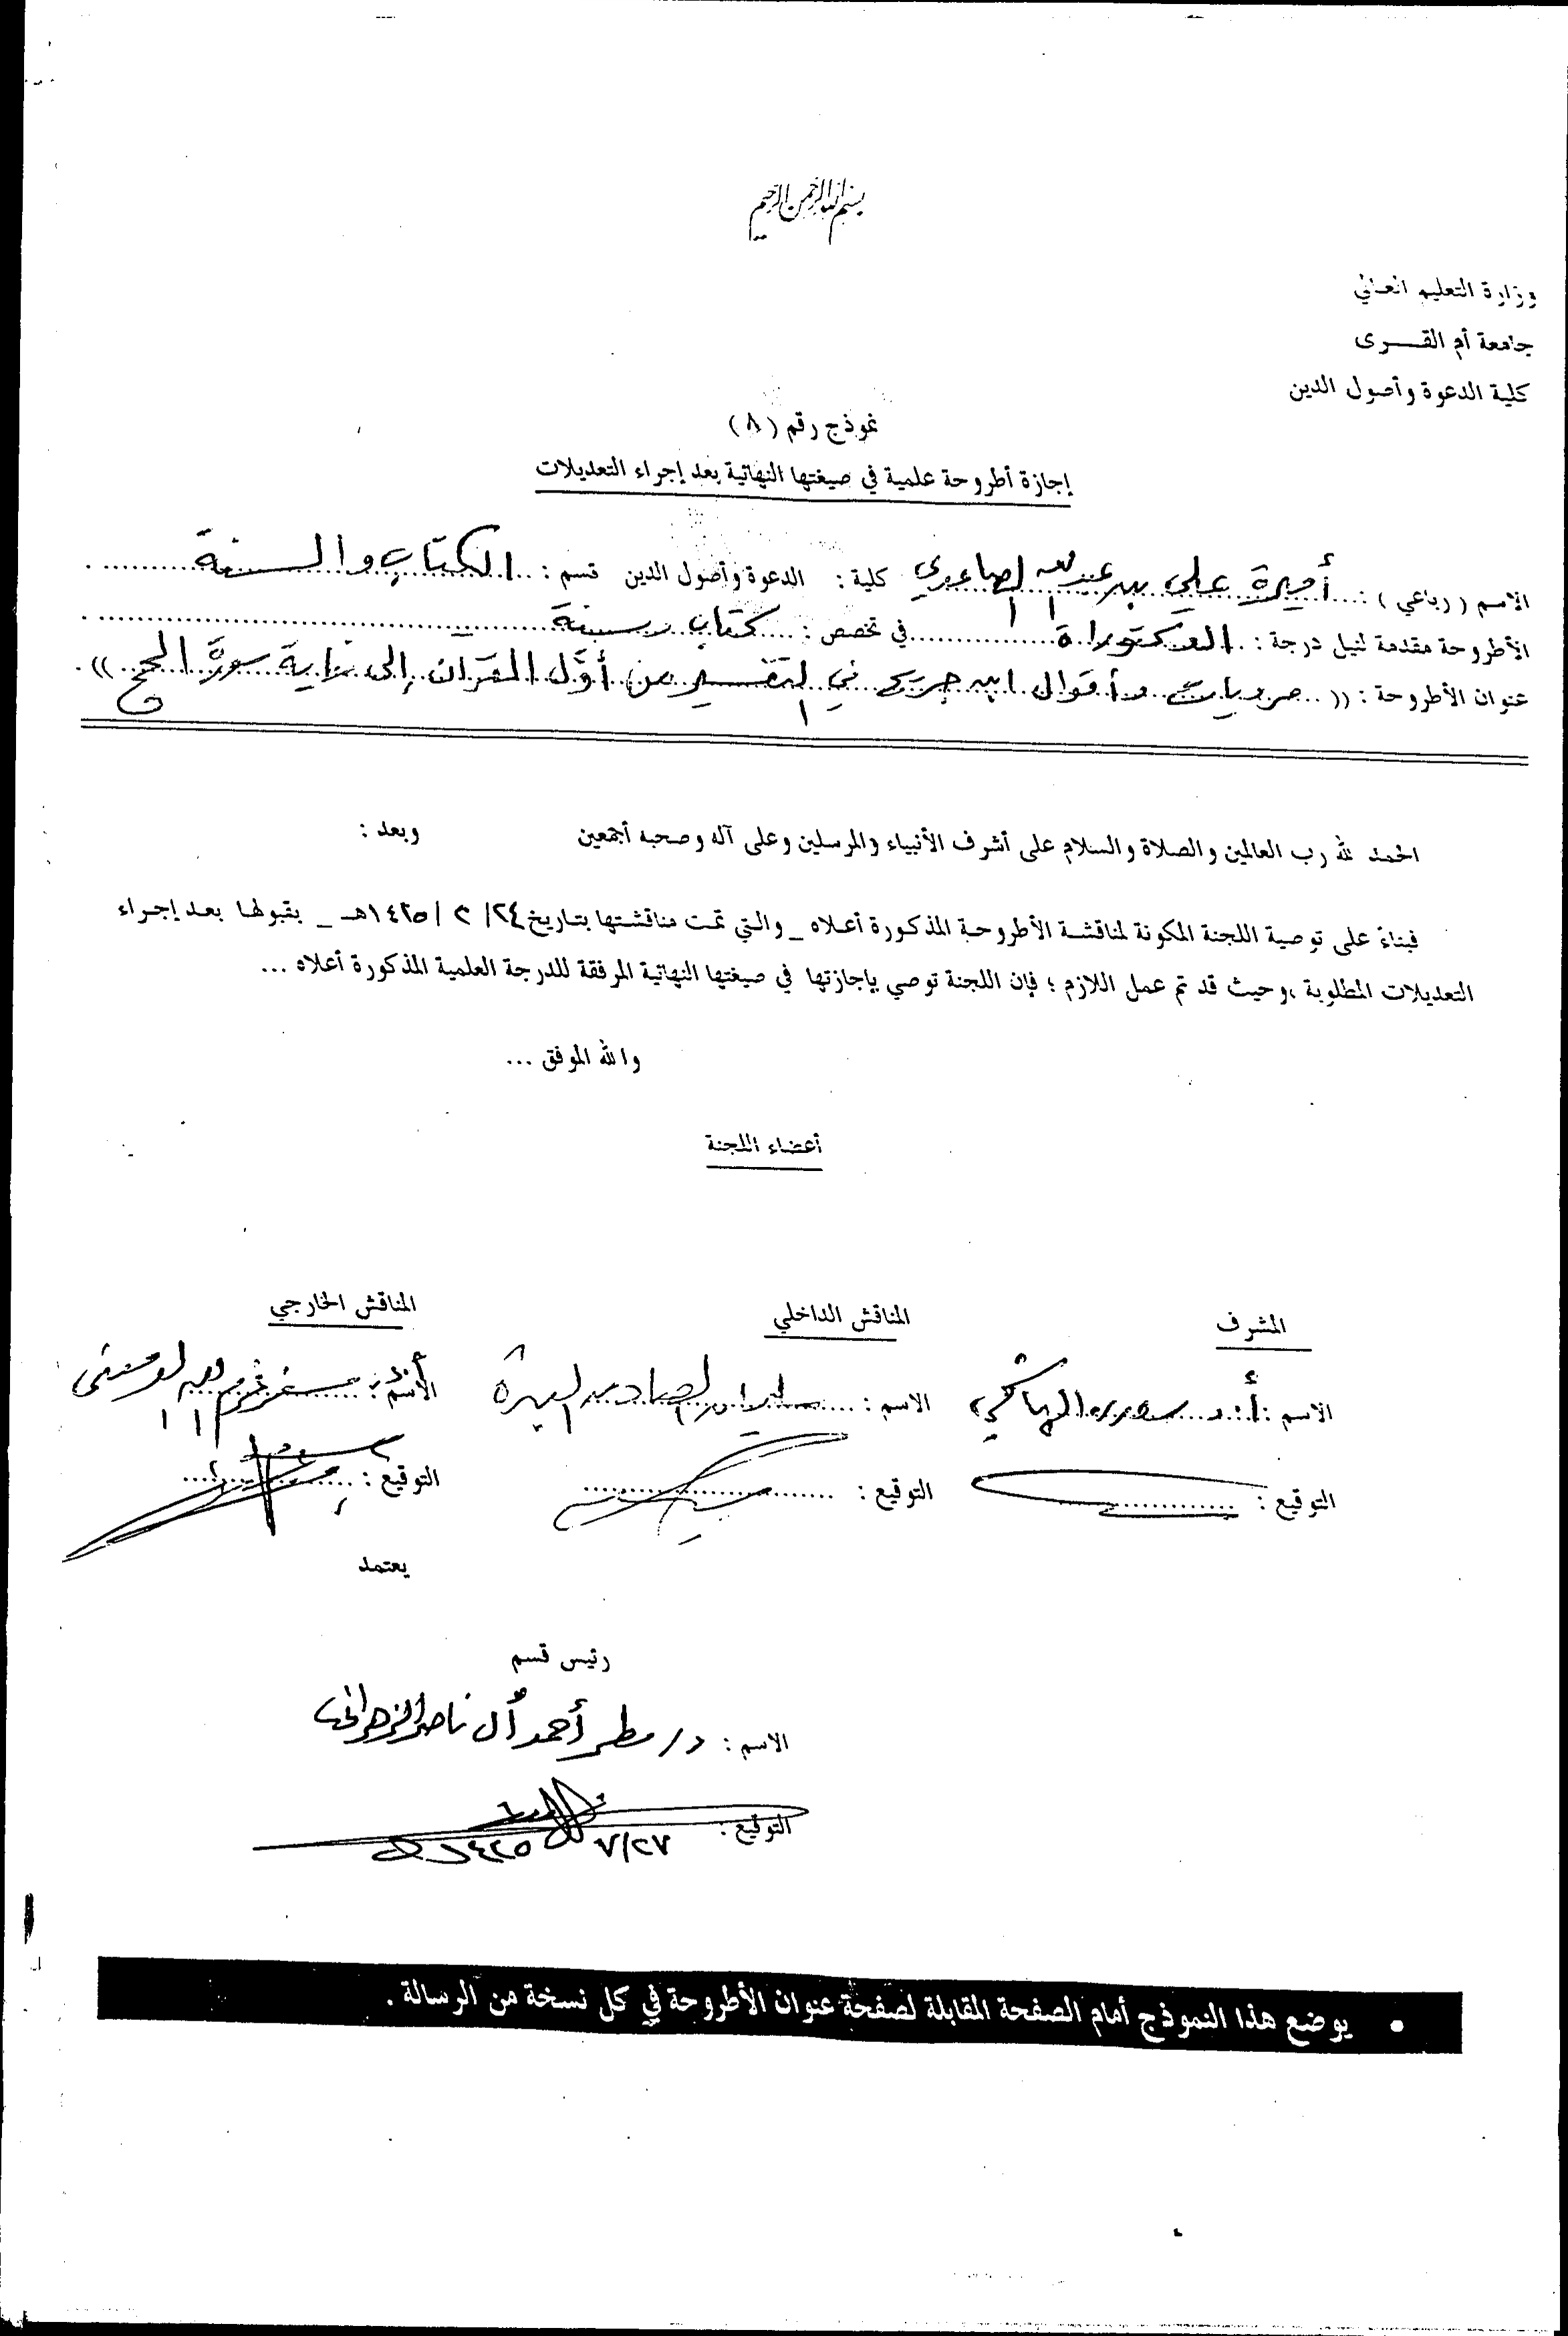 بسم الله الرحمن الرحيم
وزارة التعليم العالي
جامعة أم القــرى
كلية الدعوة وأصول الدين
نموذج رقم (٨)
إجازة أطروحة علمية في صيغتها النهائية بعد إجراء التعديلات
الاسم ( رباعي ) : أميرة علي بن عبد الله الصاعدي كلية : الدعوة وأصول الدين قسم : الكتاب والسنة
الأطروحة مقدمة لنيل درجة : الدكتوراة في تخصص : كتاب وسنة
عنوان الأطروحة : (( مرويات وأقوال ابن جريج في التفسير من أوَّل القرآن إلى نهاية سورة الحج ))
الحمد لله رب العالمين والصلاة والسلام على أشرف الأنبياء والمرسلين وعلى آله وصحبه أجمعين وبعد :
فبناءً على توصية اللجنة المكونة لمناقشة الأطروحة المذكورة أعلاه _ والتي تمت مناقشتها بتاريخ ٢٤/ ٢ / ١٤٢٥هـ _ بقبولها بعد إجراء
التعديلات المطلوبة ،وحيث قد تم عمل اللازم ؛ فإن اللجنة توصي بإجازتها في صيغتها النهائية المرفقة للدرجة العلمية المذكورة أعلاه ...
والله الموفق ...
أعضاء اللجنة
المشرف المناقش الداخلي المناقش الخارجي
الاسم : أ.د. الاسم : الاسم : أ.د.
التوقيع : التوقيع : التوقيع :
يعتمد
رئيس قسم
الاسم : د/ مطر أحمد آل ناصر الزهراني
التوقيع : ٢٧/٧ ١٤٢٥هـ
• يوضع هذا النموذج أمام الصفحة المقابلة لصفحة عنوان الأطروحة في كل نسخة من الرسالة .